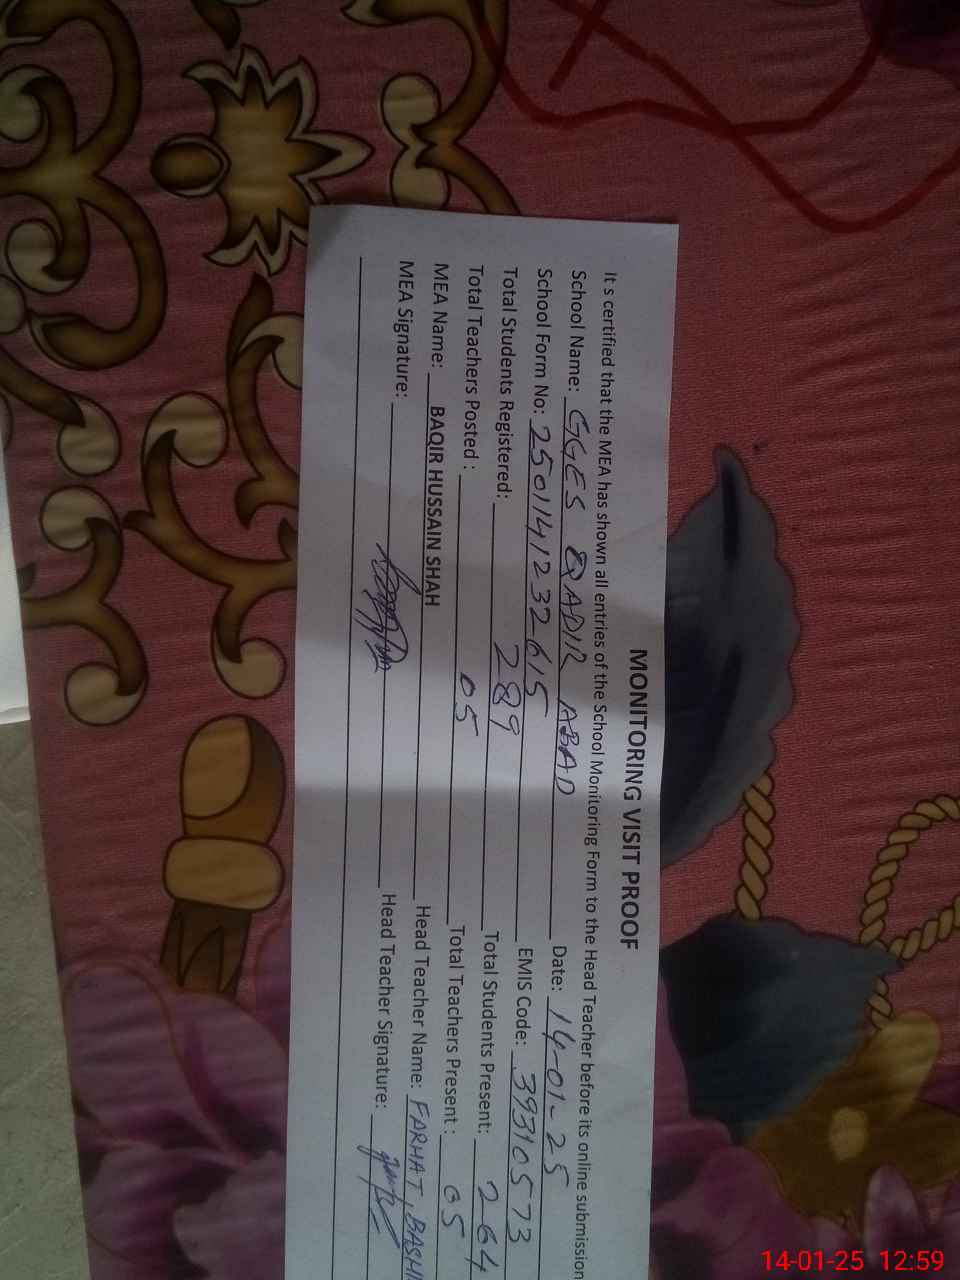 MONITORING VISIT PROOF
It s certified that the MEA has shown all entries of the School Monitoring Form to the Head Teacher before its online submission
School Name: GGES QADIR ABAD Date: 14-01-25
School Form No: 2501141232615 EMIS Code: 39310573
Total Students Registered: 289 Total Students Present: 264
Total Teachers Posted : 05 Total Teachers Present : 05
MEA Name: BAQIR HUSSAIN SHAH Head Teacher Name: FARHAT, BASHI
MEA Signature: Head Teacher Signature:
14-01-25 12:59